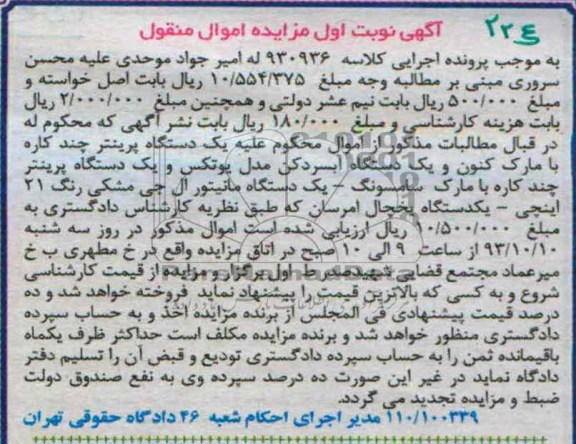 ۲۲ع
آگهی نوبت اول مزایده اموال منقول
به موجب پرونده اجرایی کلاسه ۹۳۰۹۳۶ له امیر جواد موحدی علیه محسن
سروری مبنی بر مطالبه وجه مبلغ ۱۰/۵۵۴/۳۷۵ ریال بابت اصل خواسته و
مبلغ ۵۰۰/۰۰۰ ریال بابت نیم عشر دولتی و همچنین مبلغ ۲/۰۰۰/۰۰۰ ریال
بابت هزینه کارشناسی و مبلغ ۱۸۰/۰۰۰ ریال بابت نشر آگهی که محکوم له
در قبال مطالبات مذکور از اموال محکوم علیه یک دستگاه پرینتر چند کاره
با مارک کنون و یک دستگاه آبسردکن مدل یوتکس و یک دستگاه پرینتر
چند کاره با مارک سامسونگ - یک دستگاه مانیتور ال جی مشکی رنگ ۲۱
اینچی - یکدستگاه یخچال امرسان که طبق نظریه کارشناس دادگستری به
مبلغ ۱۰/۵۰۰/۰۰۰ ریال ارزیابی شده است اموال مذکور در روز سه شنبه
۹۳/۱۰/۱۰ از ساعت ۹ الی ۱۰ صبح در اتاق مزایده واقع در خ مطهری ب خ
میرعماد مجتمع قضایی شهید صدر ط اول برگزار و مزایده از قیمت کارشناسی
شروع و به کسی که بالاترین قیمت را پیشنهاد نماید فروخته خواهد شد و ده
درصد قیمت پیشنهادی فی المجلس از برنده مزایده اخذ و به حساب سپرده
دادگستری منظور خواهد شد و برنده مزایده مکلف است حداکثر ظرف یکماه
باقیمانده ثمن را به حساب سپرده دادگستری تودیع و قبض آن را تسلیم دفتر
دادگاه نماید در غیر این صورت ده درصد سپرده وی به نفع صندوق دولت
ضبط و مزایده تجدید می گردد.
۱۱۰/۱۰۰۳۳۹ مدیر اجرای احکام شعبه ۴۶ دادگاه حقوقی تهران